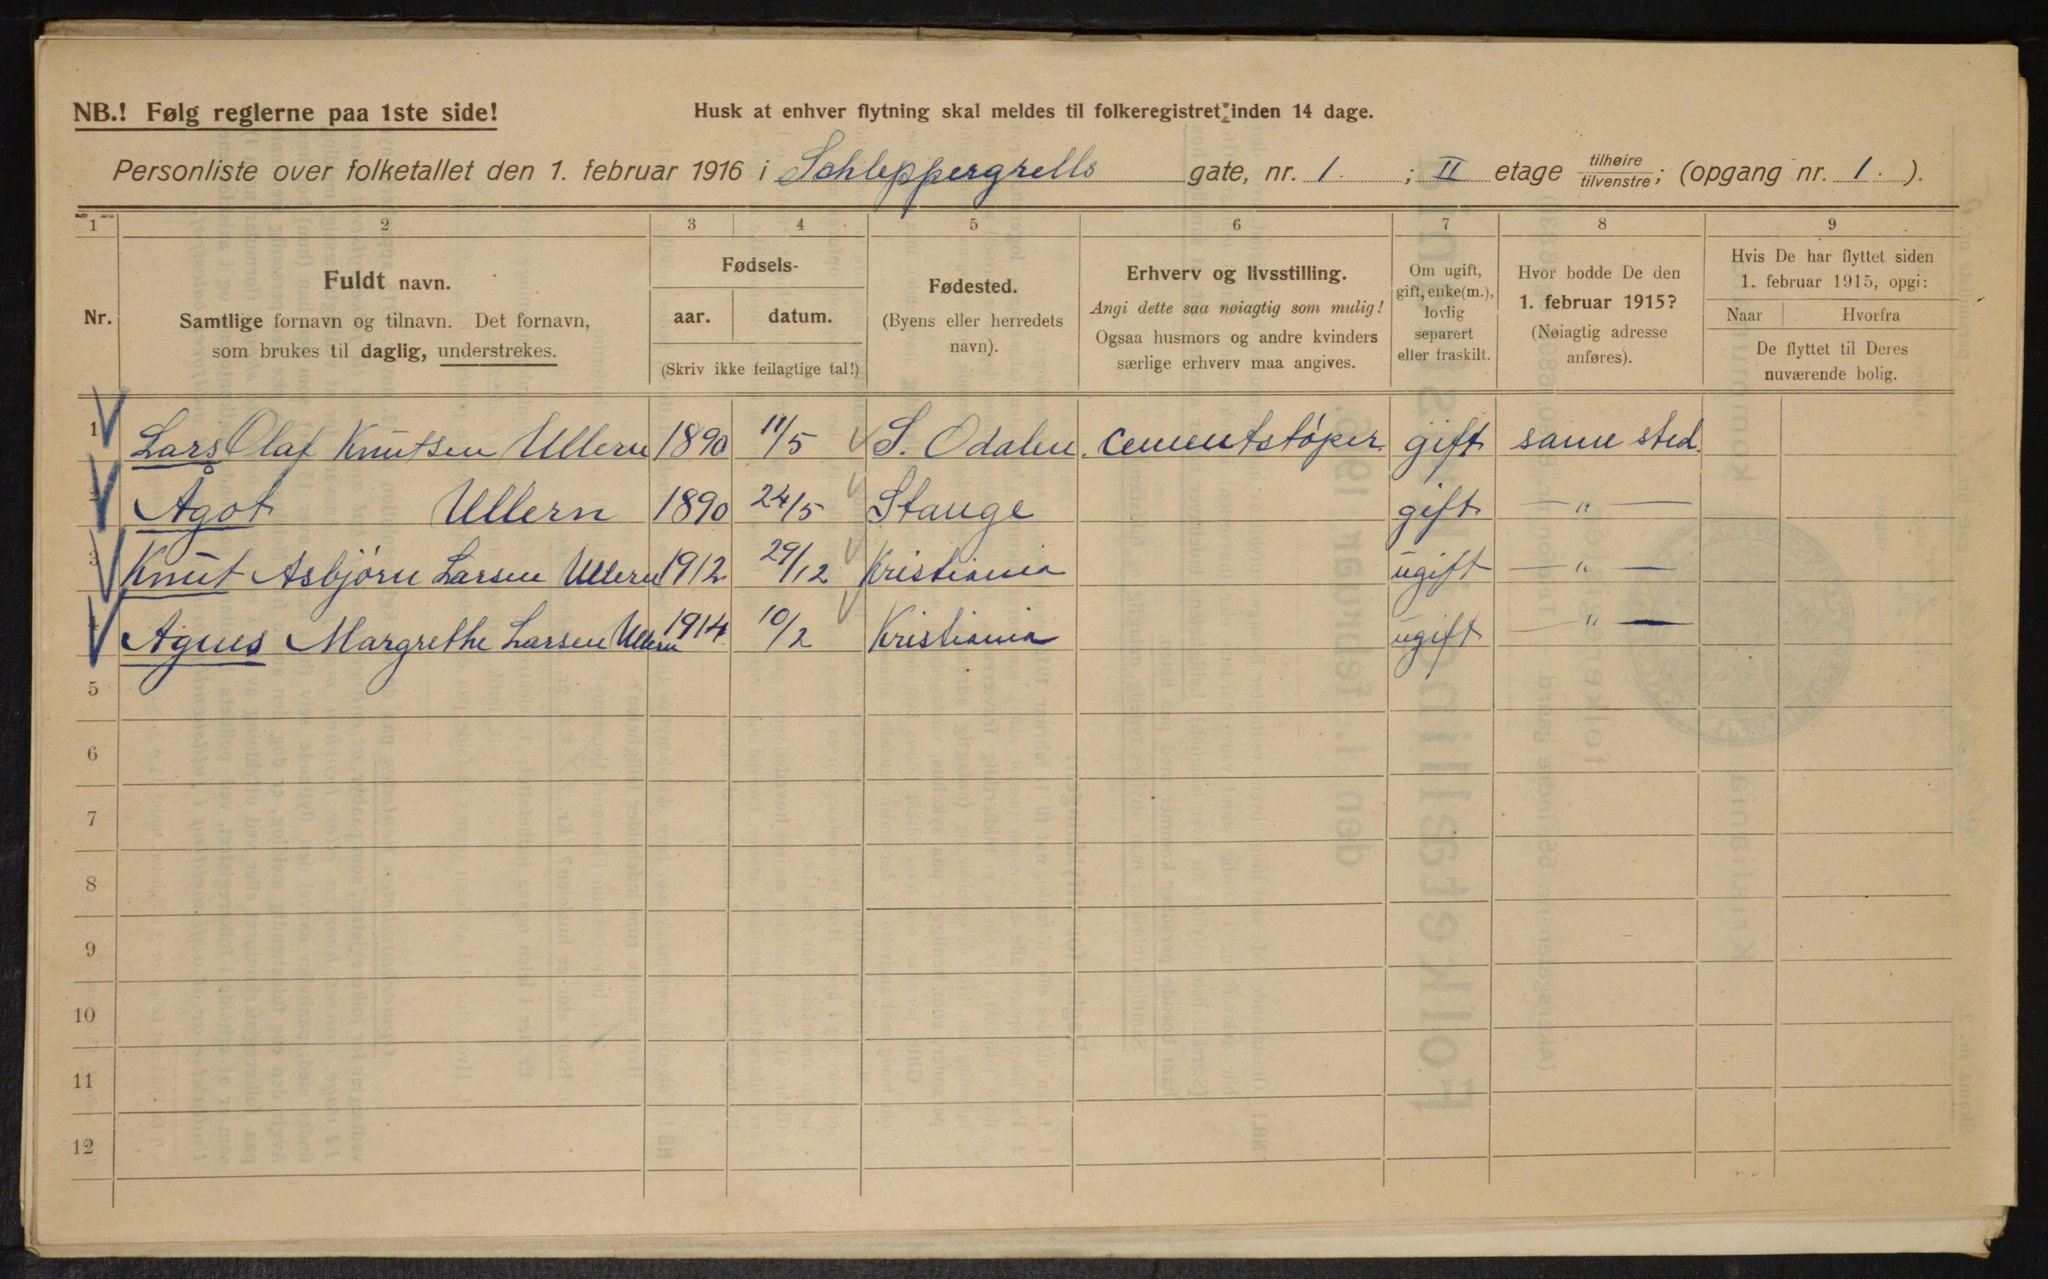 NB.! Følg reglerne paa 1ste side!
Husk at enhver flytning skal meldes til folkeregistret inden 14 dage.
Personliste over folketallet den 1. februar 1916 i Schleppergrells gate, nr. 1. ; II etage tilhøire/tilvenstre; (opgang nr. 1. ).
1 2 3 4 5 6 7 8 9
Nr.
Fuldt navn.
Samtlige fornavn og tilnavn. Det fornavn,
som brukes til daglig, understrekes.
Fødsels-
aar. datum.
(Skriv ikke feilagtige tal!)
Fødested.
(Byens eller herredets
navn).
Erhverv og livsstilling.
Angi dette saa nøiagtig som mulig!
Ogsaa husmors og andre kvinders
særlige erhverv maa angives.
Om ugift,
gift, enke(m.),
lovlig
separert
eller fraskilt.
Hvor bodde De den
1. februar 1915?
(Nøiagtig adresse
anføres).
Hvis De har flyttet siden
1. februar 1915, opgi:
Naar Hvorfra
De flyttet til Deres
nuværende bolig.
1 Lars Olaf Knutsen Ullern 1890 11/5 S. Odalen. cementstøper. gift samme sted.
2 Ågot Ullern 1890 24/5 Stange gift. — " —
3 Knut Asbjørn Larsen Ullern 1912 29/12 Kristiania ugift — " —
4 Agnes Margrethe Larsen Ullern 1914 10/2 Kristiania ugift — " —
5
6
7
8
9
10
11
12